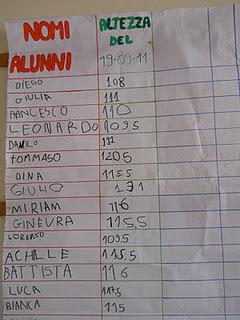 NOMI ALTEZZA
DEL
ALUNNI 19-09-11
DIEGO 108
GIULIA 111
FRANCESCO 110
LEONARDO 109.5
DANILO 111
TOMMASO 120.5
DINA 115.5
GIULIO 121
MIRIAM 116
GINEVRA 115,5
LORENSO 109.5
ACHILLE 115.5
BATTISTA 116
LUCA
BIANCA 115